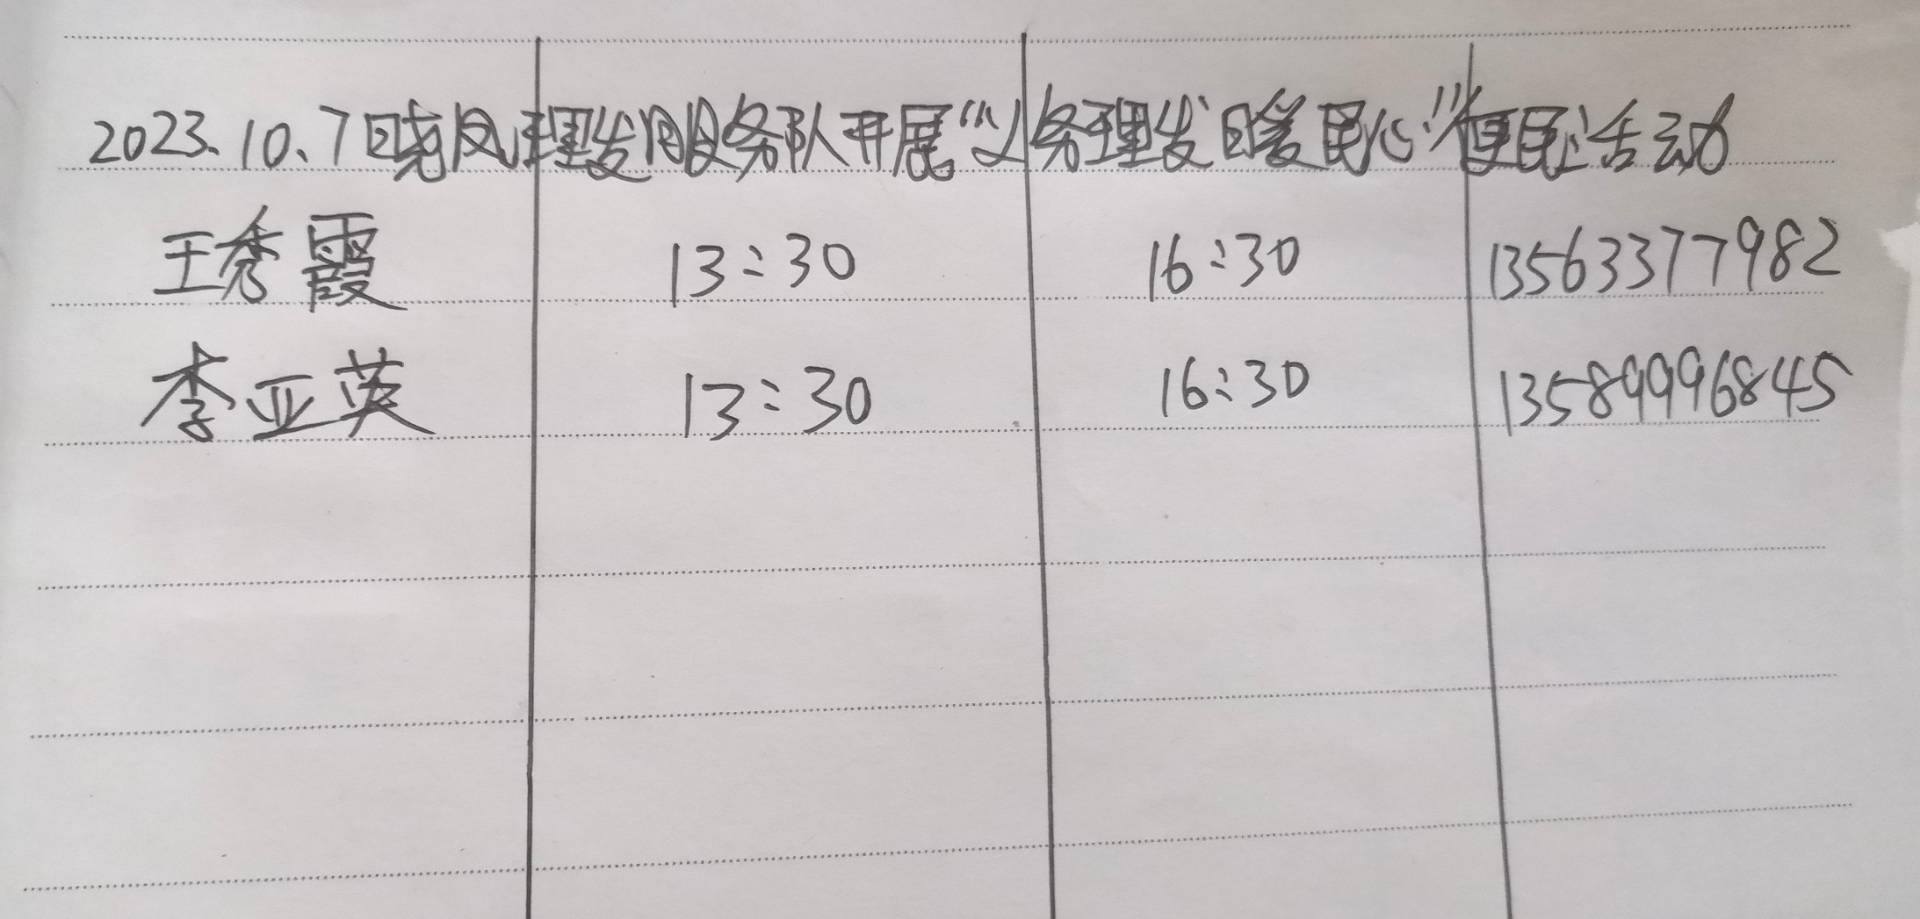 2023.10.7日晓风理发服务队开展“义务理发暖民心”便民活动
王秀霞 13:30 16:30 13563377982
李亚英 13:30 16:30 13589996845